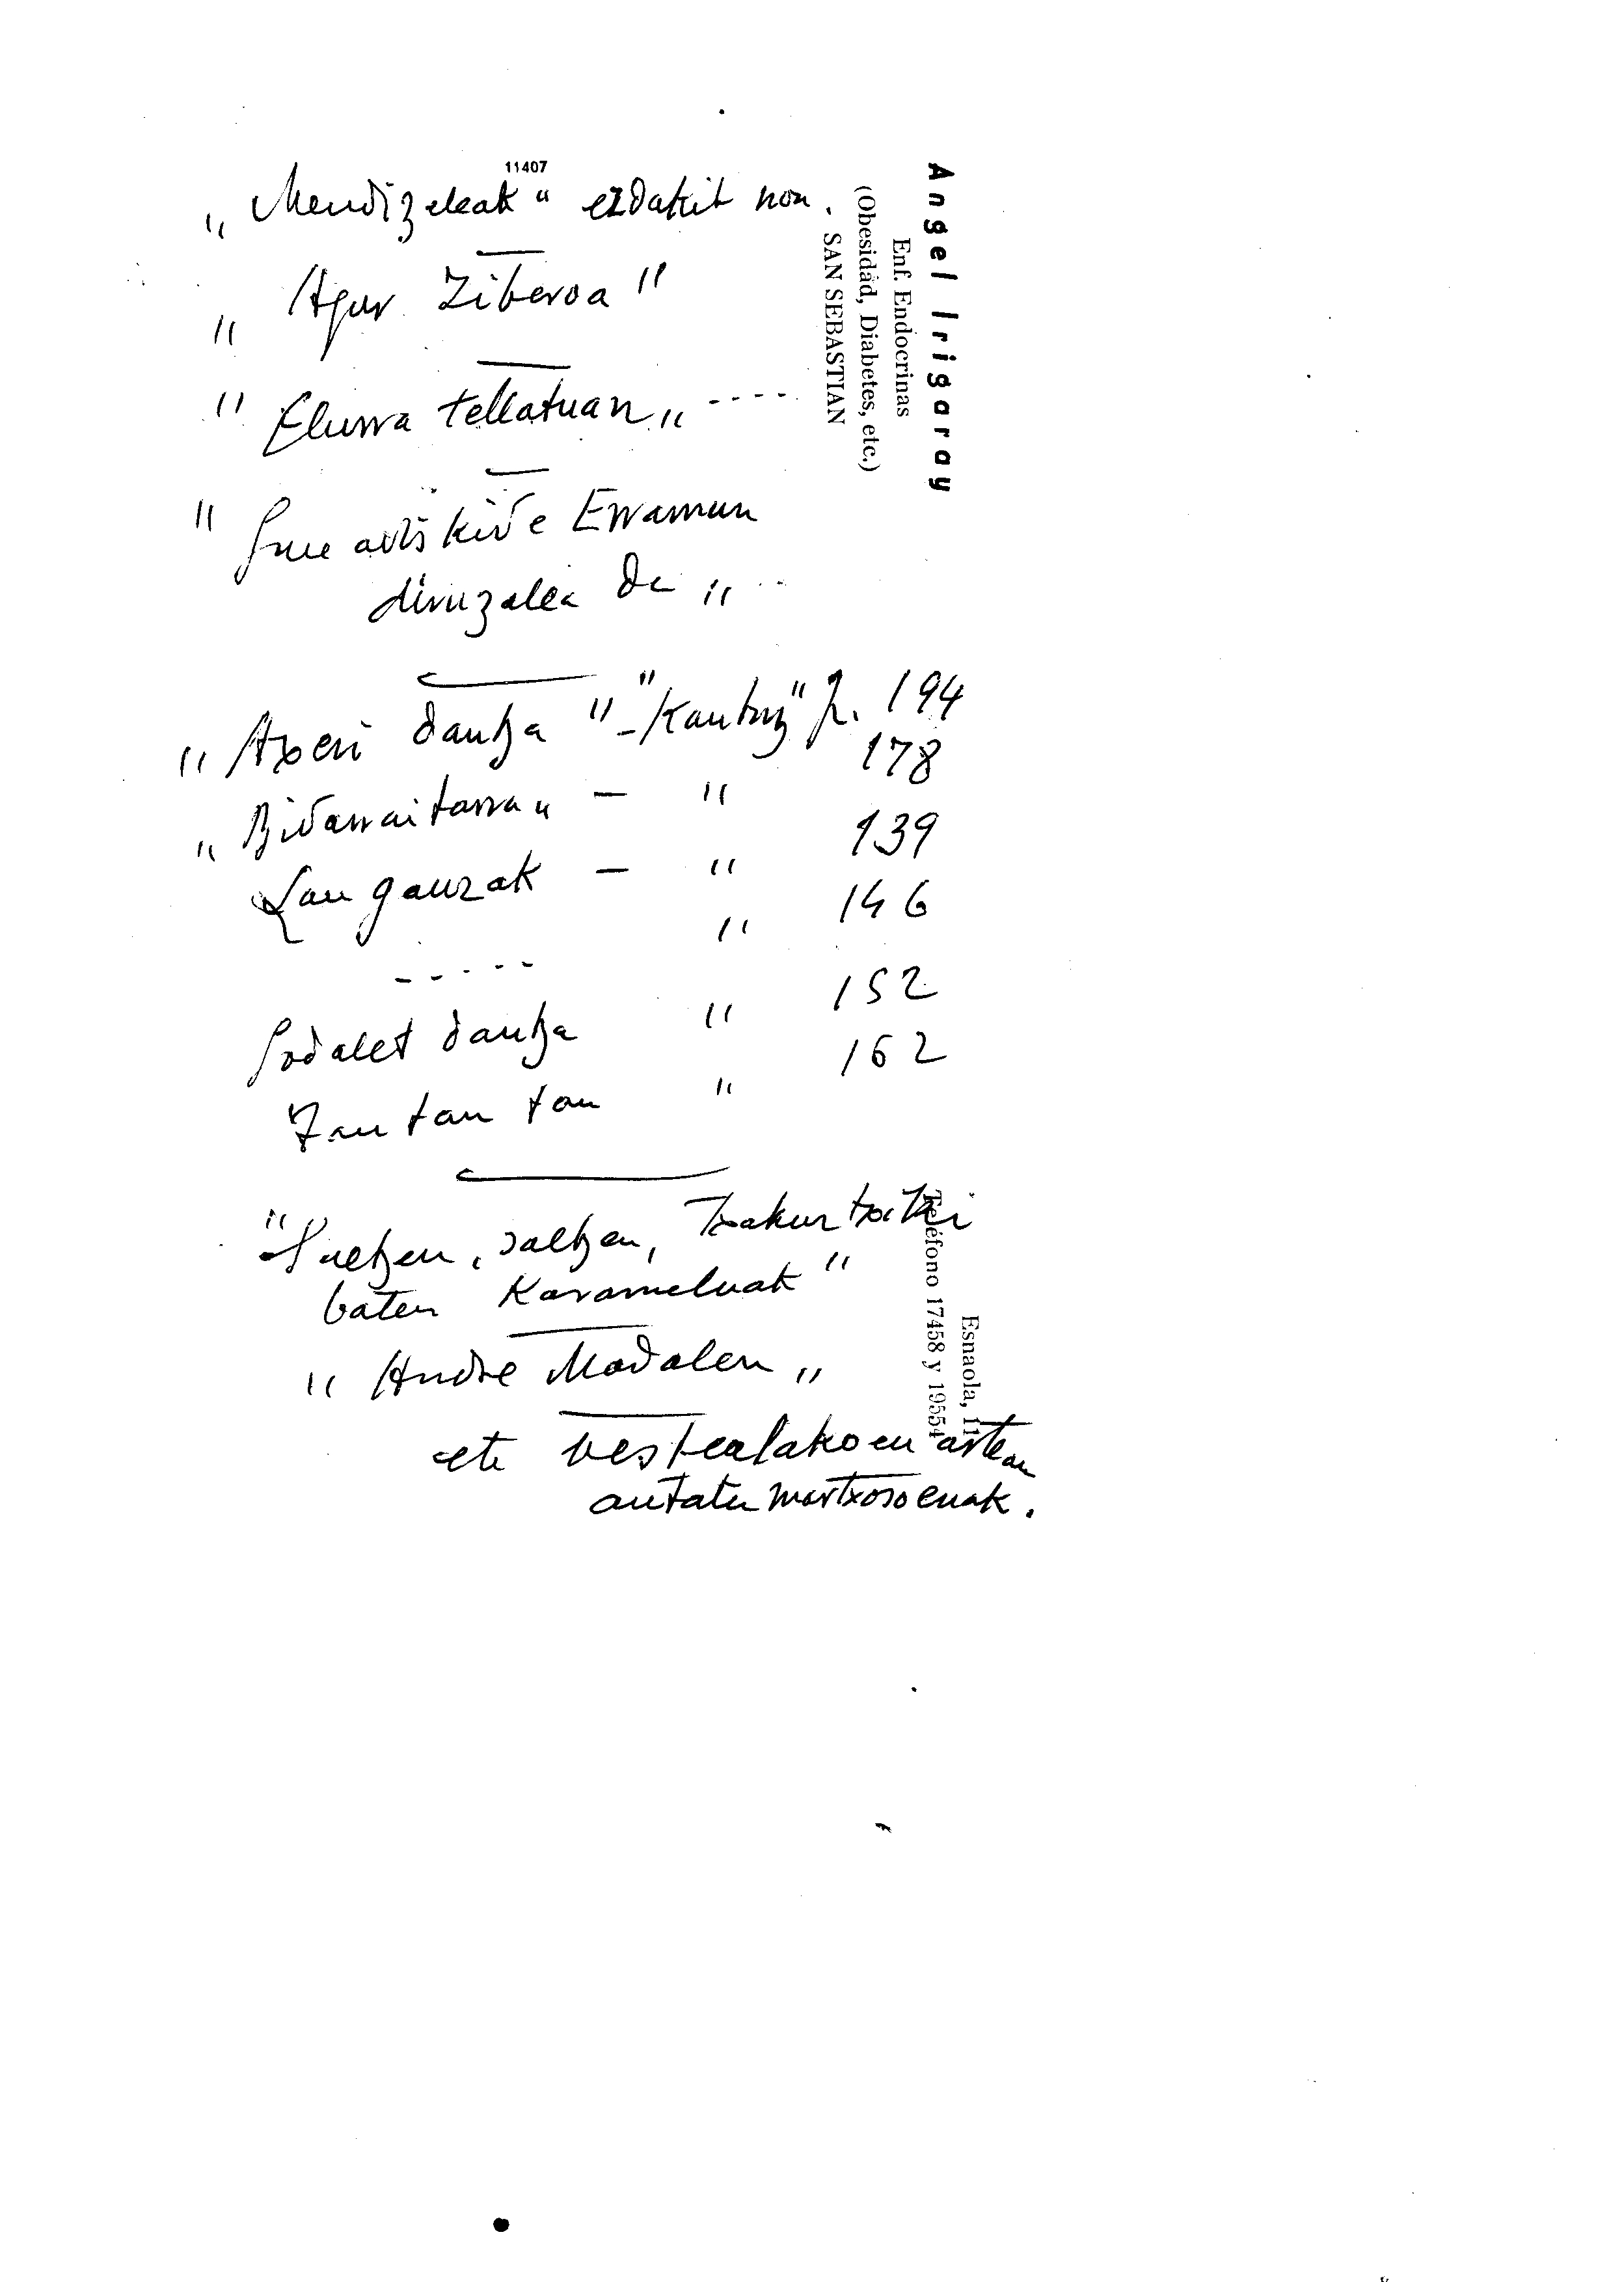 11407
„Mendizaleak" ezdakit non.
„Agur Ziberoa"
"Elurra tellatuan„ -----
"Gure artzkide Erramun
diruzalea da„ --
"Axeri dantza" - "Kantuz" p. 194
„Bidarraitarra„ - " 178
Lau gauzak - " 139
" 146
-----
Godalet dantza " 152
Tan tan tan " 162
"Saltzen, saltzen, Txakur txiki
baten Karameluak"
"Andre Madalen„
eta bestealakoen artean
autatu martxosoenak.
Angel Irigaray
Enf. Endocrinas
(Obesidad, Diabetes, etc.)
SAN SEBASTIAN
Esnaola, 11
Teléfono 17458 y 19554